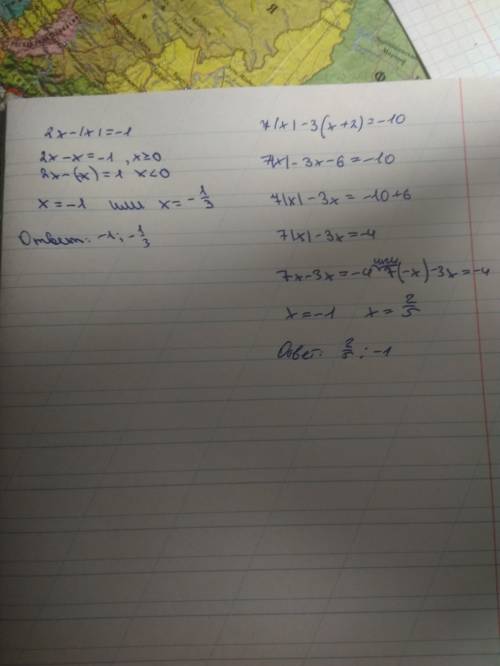 2x-|x|=-1
2x-x=-1 , x≥0
2x-(x)=1 x<0
x=-1 или x=-1/3
Ответ: -1; -1/3
7|x|-3(x+2)=-10
7|x|-3x-6=-10
7|x|-3x=-10+6
7|x|-3x=-4
7x-3x=-4 или 7(-x)-3x=-4
x=-1 x=2/5
Ответ: 2/5; -1